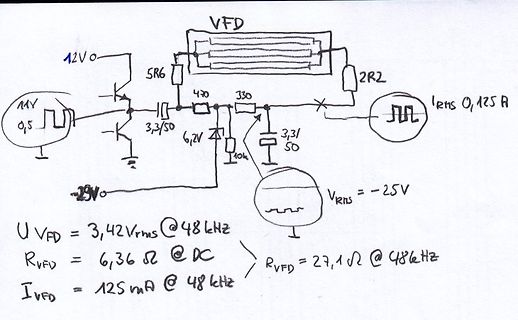 VFD
12V
5R6
2R2
11V
0,5
470
330
3,3/50
6,2V
10k
3,3/
50
IRMS 0,125A
-29V
VRMS = -25V
U VFD = 3,42Vrms @ 48kHz
RVFD = 6,36 Ω @ DC
IVFD = 125mA @ 48kHz
RVFD = 27,1 Ω @ 48kHz